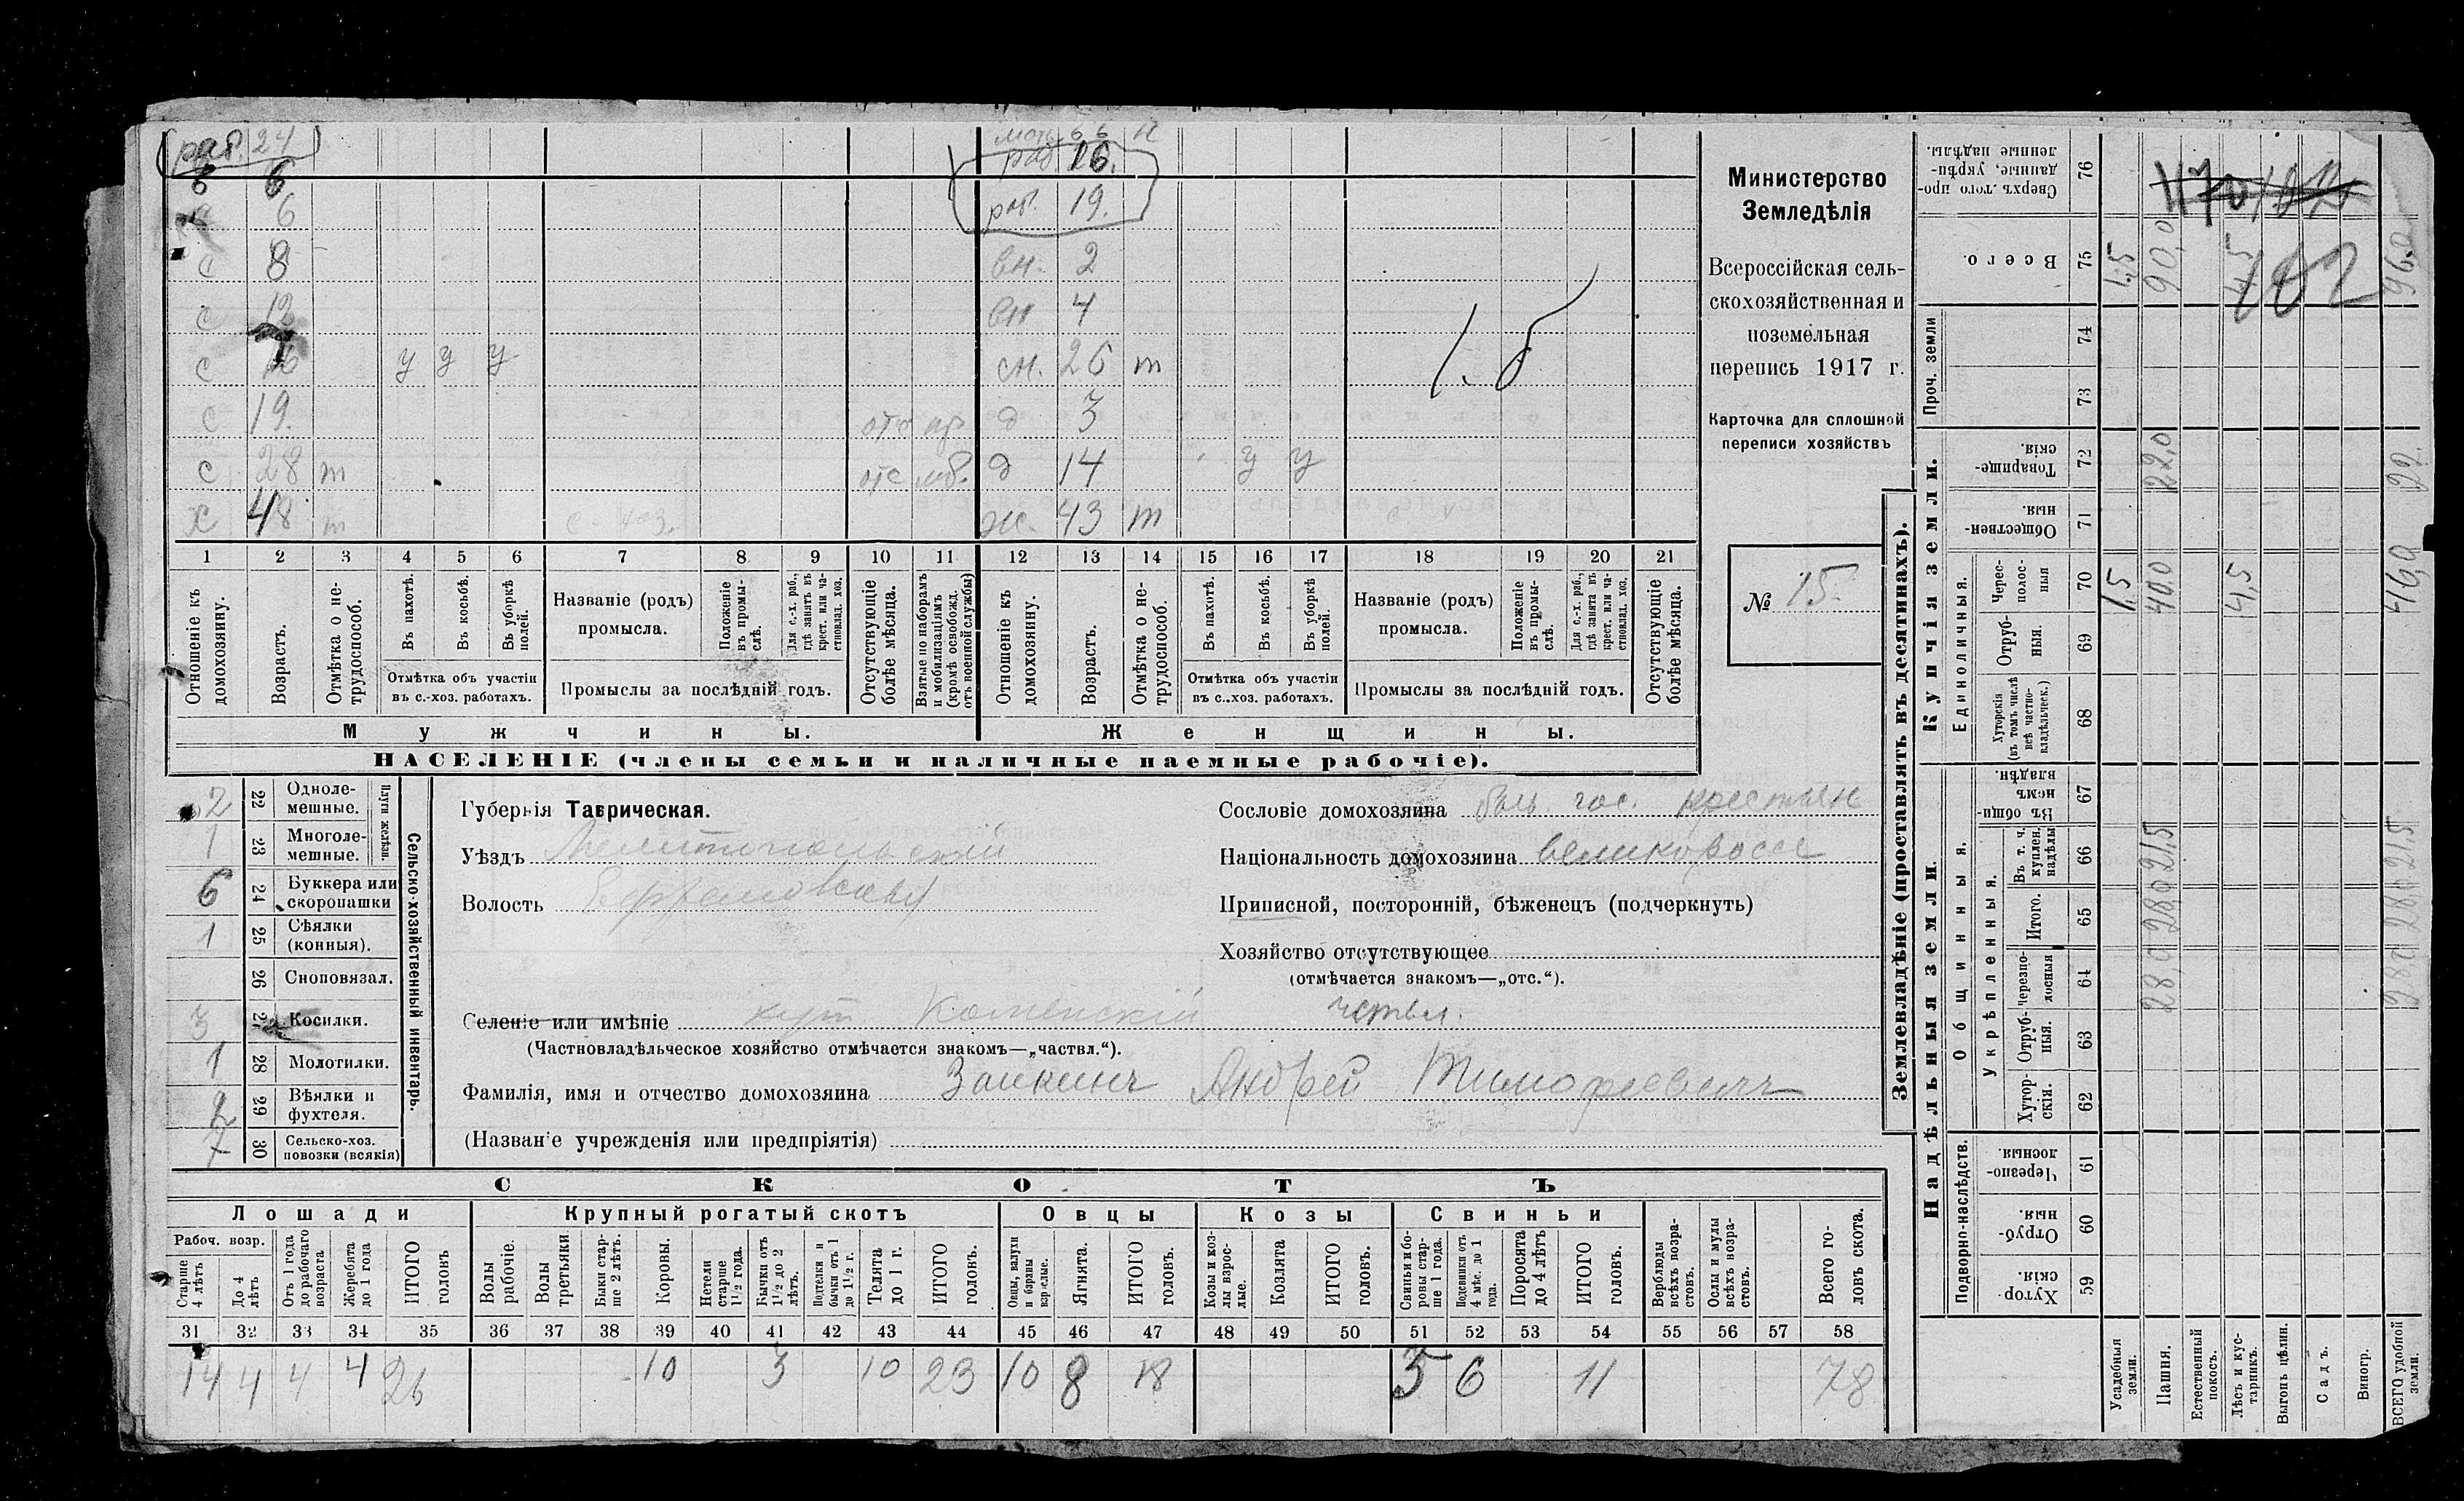 раб. 24
мать 66 н
раб 16.
6 6
6
раб. 19.
с 8
вн. 2
с 12
вн 4
с 16 у у у
сн. 26 т
1. б
с 19.
отс
д 3
с 28 т
отс моб.
д 14 у у
х 48 т
с. хоз.
ж. 43 т
1 2 3 4 5 6 7 8 9 10 11 12 13 14 15 16 17 18 19 20 21
Отношеніе къ домохозяину.
Возрастъ.
Отмѣтка о нетрудоспособ.
Въ пахотѣ.
Въ косьбѣ.
Въ уборкѣ полей.
Отмѣтка объ участіи въ с.-хоз. работахъ.
Названіе (родъ) промысла.
Положеніе въ промыслѣ.
Для с.-х. раб., гдѣ занятъ въ крест. или частновлад. хоз.
Промыслы за послѣдній годъ.
Отсутствующіе болѣе мѣсяца.
Взятые по наборамъ и мобилизаціямъ (кромѣ освобожд. отъ военной службы)
Отношеніе къ домохозяину.
Возрастъ.
Отмѣтка о нетрудоспособ.
Въ пахотѣ.
Въ косьбѣ.
Въ уборкѣ полей.
Отмѣтка объ участіи въ с..хоз. работахъ.
Названіе (родъ) промысла.
Положеніе въ промыслѣ.
Для с.-х. раб., гдѣ занята въ крест. или частновлад. хоз.
Промыслы за послѣдній годъ.
Отсутствующіе болѣе мѣсяца.
Мужчины.
Женщины.
НАСЕЛЕНІЕ (члены семьи и наличные наемные рабочіе).
Министерство
Земледѣлія
Всероссійская сель-
скохозяйственная и
поземельная
перепись 1917 г.
Карточка для сплошной
переписи хозяйствъ
№ 15.
2 22 Однолемешные.
1 23 Многолемешные.
Плуги желѣзн.
6 24 Буккера или скоропашки
1 25 Сѣялки (конныя).
26 Сноповязал.
3 27 Косилки.
1 28 Молотилки.
2 29 Вѣялки и фухтеля.
7 30 Сельско-хоз. повозки (всякія)
Сельско-хозяйственный инвентарь.
Губернія Таврическая.
Уѣздъ Мелитопольский
Волость Ефремовская
Сословіе домохозяина быв. гос. крестьян
Національность домохозяина великоросс
Приписной, посторонній, бѣженецъ (подчеркнуть)
Хозяйство отсутствующее
(отмѣчается знакомъ—„отс.“).
Селеніе или имѣніе хут. Каменскій частвл.
(Частновладѣльческое хозяйство отмѣчается знакомъ—„частвл.“).
Фамилія, имя и отчество домохозяина Заикинъ Андрей Тимофеевичъ
(Названіе учрежденія или предпріятія)
СКОТЪ
Лошади
Крупный рогатый скотъ
Овцы
Козы
Свиньи
Рабоч. возр.
Старше 4 лѣтъ
До 4 лѣтъ
Отъ 1 года до рабочаго возраста
Жеребята до 1 года
ИТОГО головъ
Волы рабочіе.
Волы третьяки
Быки старше 2 лѣтъ.
Коровы.
Нетели старше 1½ года.
Бычки отъ 1½ до 2 лѣтъ.
Подтелки и бычки отъ 1 до 1½ г.
Телята до 1 г.
ИТОГО головъ.
Овцы, валухи и бараны взрослые.
Ягнята.
ИТОГО головъ.
Козы и козлы взрослые.
Козлята
ИТОГО головъ.
Свиньи и боровы старше 1 года.
Подсвинки отъ 4 мѣс. до 1 года.
Поросята до 4 лѣтъ
ИТОГО головъ.
Верблюды всѣхъ возрастовъ.
Ослы и мулы всѣхъ возрастовъ.
Всего головъ скота.
31 32 33 34 35 36 37 38 39 40 41 42 43 44 45 46 47 48 49 50 51 52 53 54 55 56 57 58
14 4 4 4 26 10 3 10 23 10 8 18 5 6 11 78
Землевладѣніе (проставлять въ десятинахъ).
Надѣльныя земли.
Купчія земли.
Проч. земли
Подворно-наслѣдств.
Общинныя.
Укрѣпленныя.
Единоличныя.
Хуторскія. 59
Отрубныя. 60
Черезполосныя 61
Хуторскія. 62
Отрубныя. 63
Черезполосныя 64
Итого. 65
Въ т. ч. куплен. надѣлы 66
Въ общинномъ владѣн. 67
Хуторскія (въ томъ числѣ всѣ частновладѣльческ.) 68
Отрубныя. 69
Чрезполосныя 70
Общественныя. 71
Товарищескія. 72
73
74
Всего. 75
Сверхъ того проданные, укрѣпленные надѣлы. 76
Усадебныя земли. 1,5 1,5
Пашня. 28,0 28,0 21,5 40,0 22,0 90,0
Естественный покосъ.
Лѣсъ и кустарникъ. 4,5 4,5
Выгонъ цѣлин.
Садъ.
Виногр.
ВСЕГО удобной земли. 28,0 28,0 21,5 46,0 22. 96.0
102